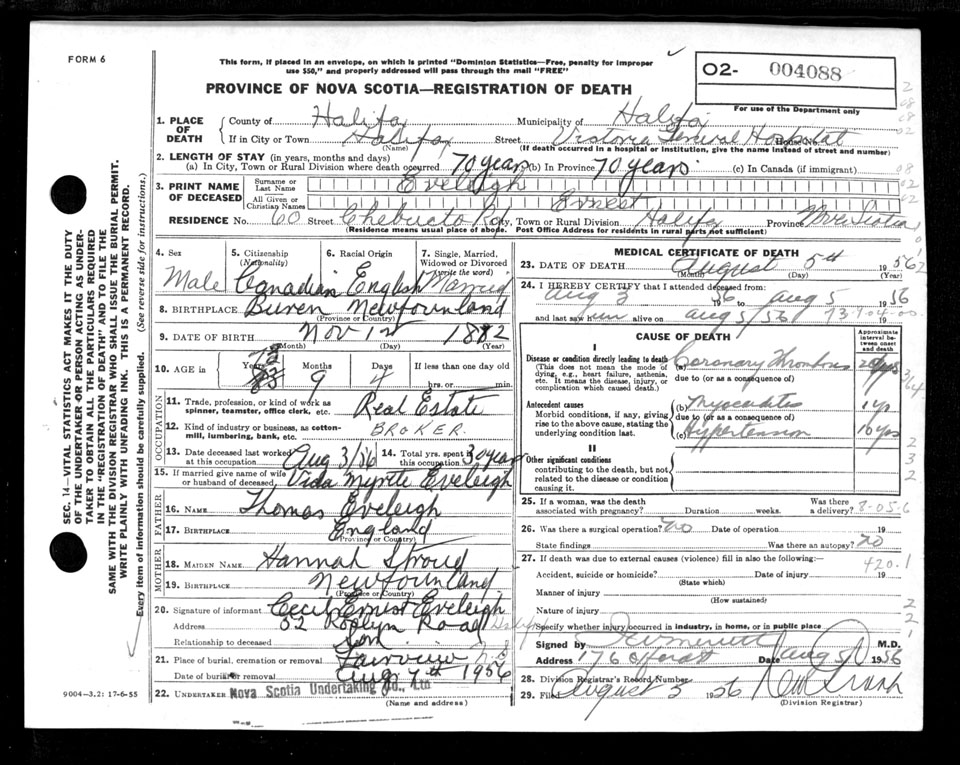 FORM 6
This form, if placed in an envelope, on which is printed "Dominion Statistics—Free, penalty for improper
use $50," and properly addressed will pass through the mail "FREE"
O2- 004088
For use of the Department only
PROVINCE OF NOVA SCOTIA—REGISTRATION OF DEATH
1. PLACE OF DEATH County of Halifax Municipality of Halifax
If in City or Town Halifax (Name) Street Victoria General Hospital House No
(If death occurred in a hospital or institution, give the name instead of street and number)
2. LENGTH OF STAY (in years, months and days)
(a) In City, Town or Rural Division where death occurred 70 years (b) In Province 70 years (c) In Canada (if immigrant)
3. PRINT NAME OF DECEASED Surname or Last Name Eveleigh
All Given or Christian Names Ernest
RESIDENCE No. 60 Street Chebucto Rd City, Town or Rural Division Halifax Province Nova Scotia
(Residence means usual place of abode. Post Office Address for residents in rural parts not sufficient)
4. Sex 5. Citizenship (Nationality) 6. Racial Origin 7. Single, Married, Widowed or Divorced (write the word)
Male Canadian English Married
8. BIRTHPLACE Buren Newfournland
(Province or Country)
9. DATE OF BIRTH Nov 1st 1882
(Month) (Day) (Year)
10. AGE in Years 73 83 Months 9 Days 4 If less than one day
hrs. or min.
OCCUPATION
11. Trade, profession, or kind of work as spinner, teamster, office clerk, etc. Real Estate
12. Kind of industry or business, as cotton-mill, lumbering, bank, etc. BROKER.
13. Date deceased last worked at this occupation Aug 3/56 14. Total yrs. spent in this occupation 30 years
15. If married give name of wife or husband of deceased Vida Myrtle Eveleigh
FATHER
16. NAME Thomas Eveleigh
17. BIRTHPLACE England
(Province or Country)
MOTHER
18. MAIDEN NAME Hannah Stroud
19. BIRTHPLACE Newfournland
(Province or Country)
20. Signature of informant Cecil Ernest Eveleigh
Address 52 Roslyn Road
Relationship to deceased Son
21. Place of burial, cremation or removal Fairview N.S
Date of burial or removal Aug 7th 1956
22. UNDERTAKER Nova Scotia Undertaking Co., Ltd
(Name and address)
MEDICAL CERTIFICATE OF DEATH
23. DATE OF DEATH August 5th 1956
(Month) (Day) (Year)
24. I HEREBY CERTIFY that I attended deceased from
Aug 3 56 to Aug 5 1956
and last saw him alive on Aug 5/56
CAUSE OF DEATH
Approximate interval between onset and death
I
Disease or condition directly leading to death (a) Coronary Thrombosis
(This does not mean the mode of dying, e.g., heart failure, asthenia, etc. It means the disease, injury, or complication which caused death.)
due to (or as a consequence of)
Antecedent causes (b) Myocarditis 1 yr
Morbid conditions, if any, giving rise to the above cause, stating the underlying condition last.
due to (or as a consequence of)
(c) Hypertension 10 yrs
II
Other significant conditions
contributing to the death, but not related to the disease or condition causing it.
25. If a woman, was the death associated with pregnancy? Duration weeks. Was there a delivery? 8-05-6
26. Was there a surgical operation? no Date of operation 19
State findings Was there an autopsy? no
27. If death was due to external causes (violence) fill in also the following: 420.1
Accident, suicide or homicide? Date of injury 19
(State which)
Manner of injury
(How sustained)
Nature of injury
Specify whether injury occurred in industry, in home, or in public place
Signed by M.D.
Address 176 Date Aug 5 1956
28. Division Registrar's Record Number
29. Filed August 5 1956
(Division Registrar)
SEC. 14—VITAL STATISTICS ACT MAKES IT THE DUTY
OF THE UNDERTAKER OR PERSON ACTING AS UNDER-
TAKER TO OBTAIN ALL THE PARTICULARS REQUIRED
IN THE "REGISTRATION OF DEATH" AND TO FILE THE
SAME WITH THE DIVISION REGISTRAR WHO SHALL ISSUE THE BURIAL PERMIT.
WRITE PLAINLY WITH UNFADING INK. THIS IS A PERMANENT RECORD.
Every item of information should be carefully supplied. (See reverse side for instructions.)
9004—3.2: 17-6-55